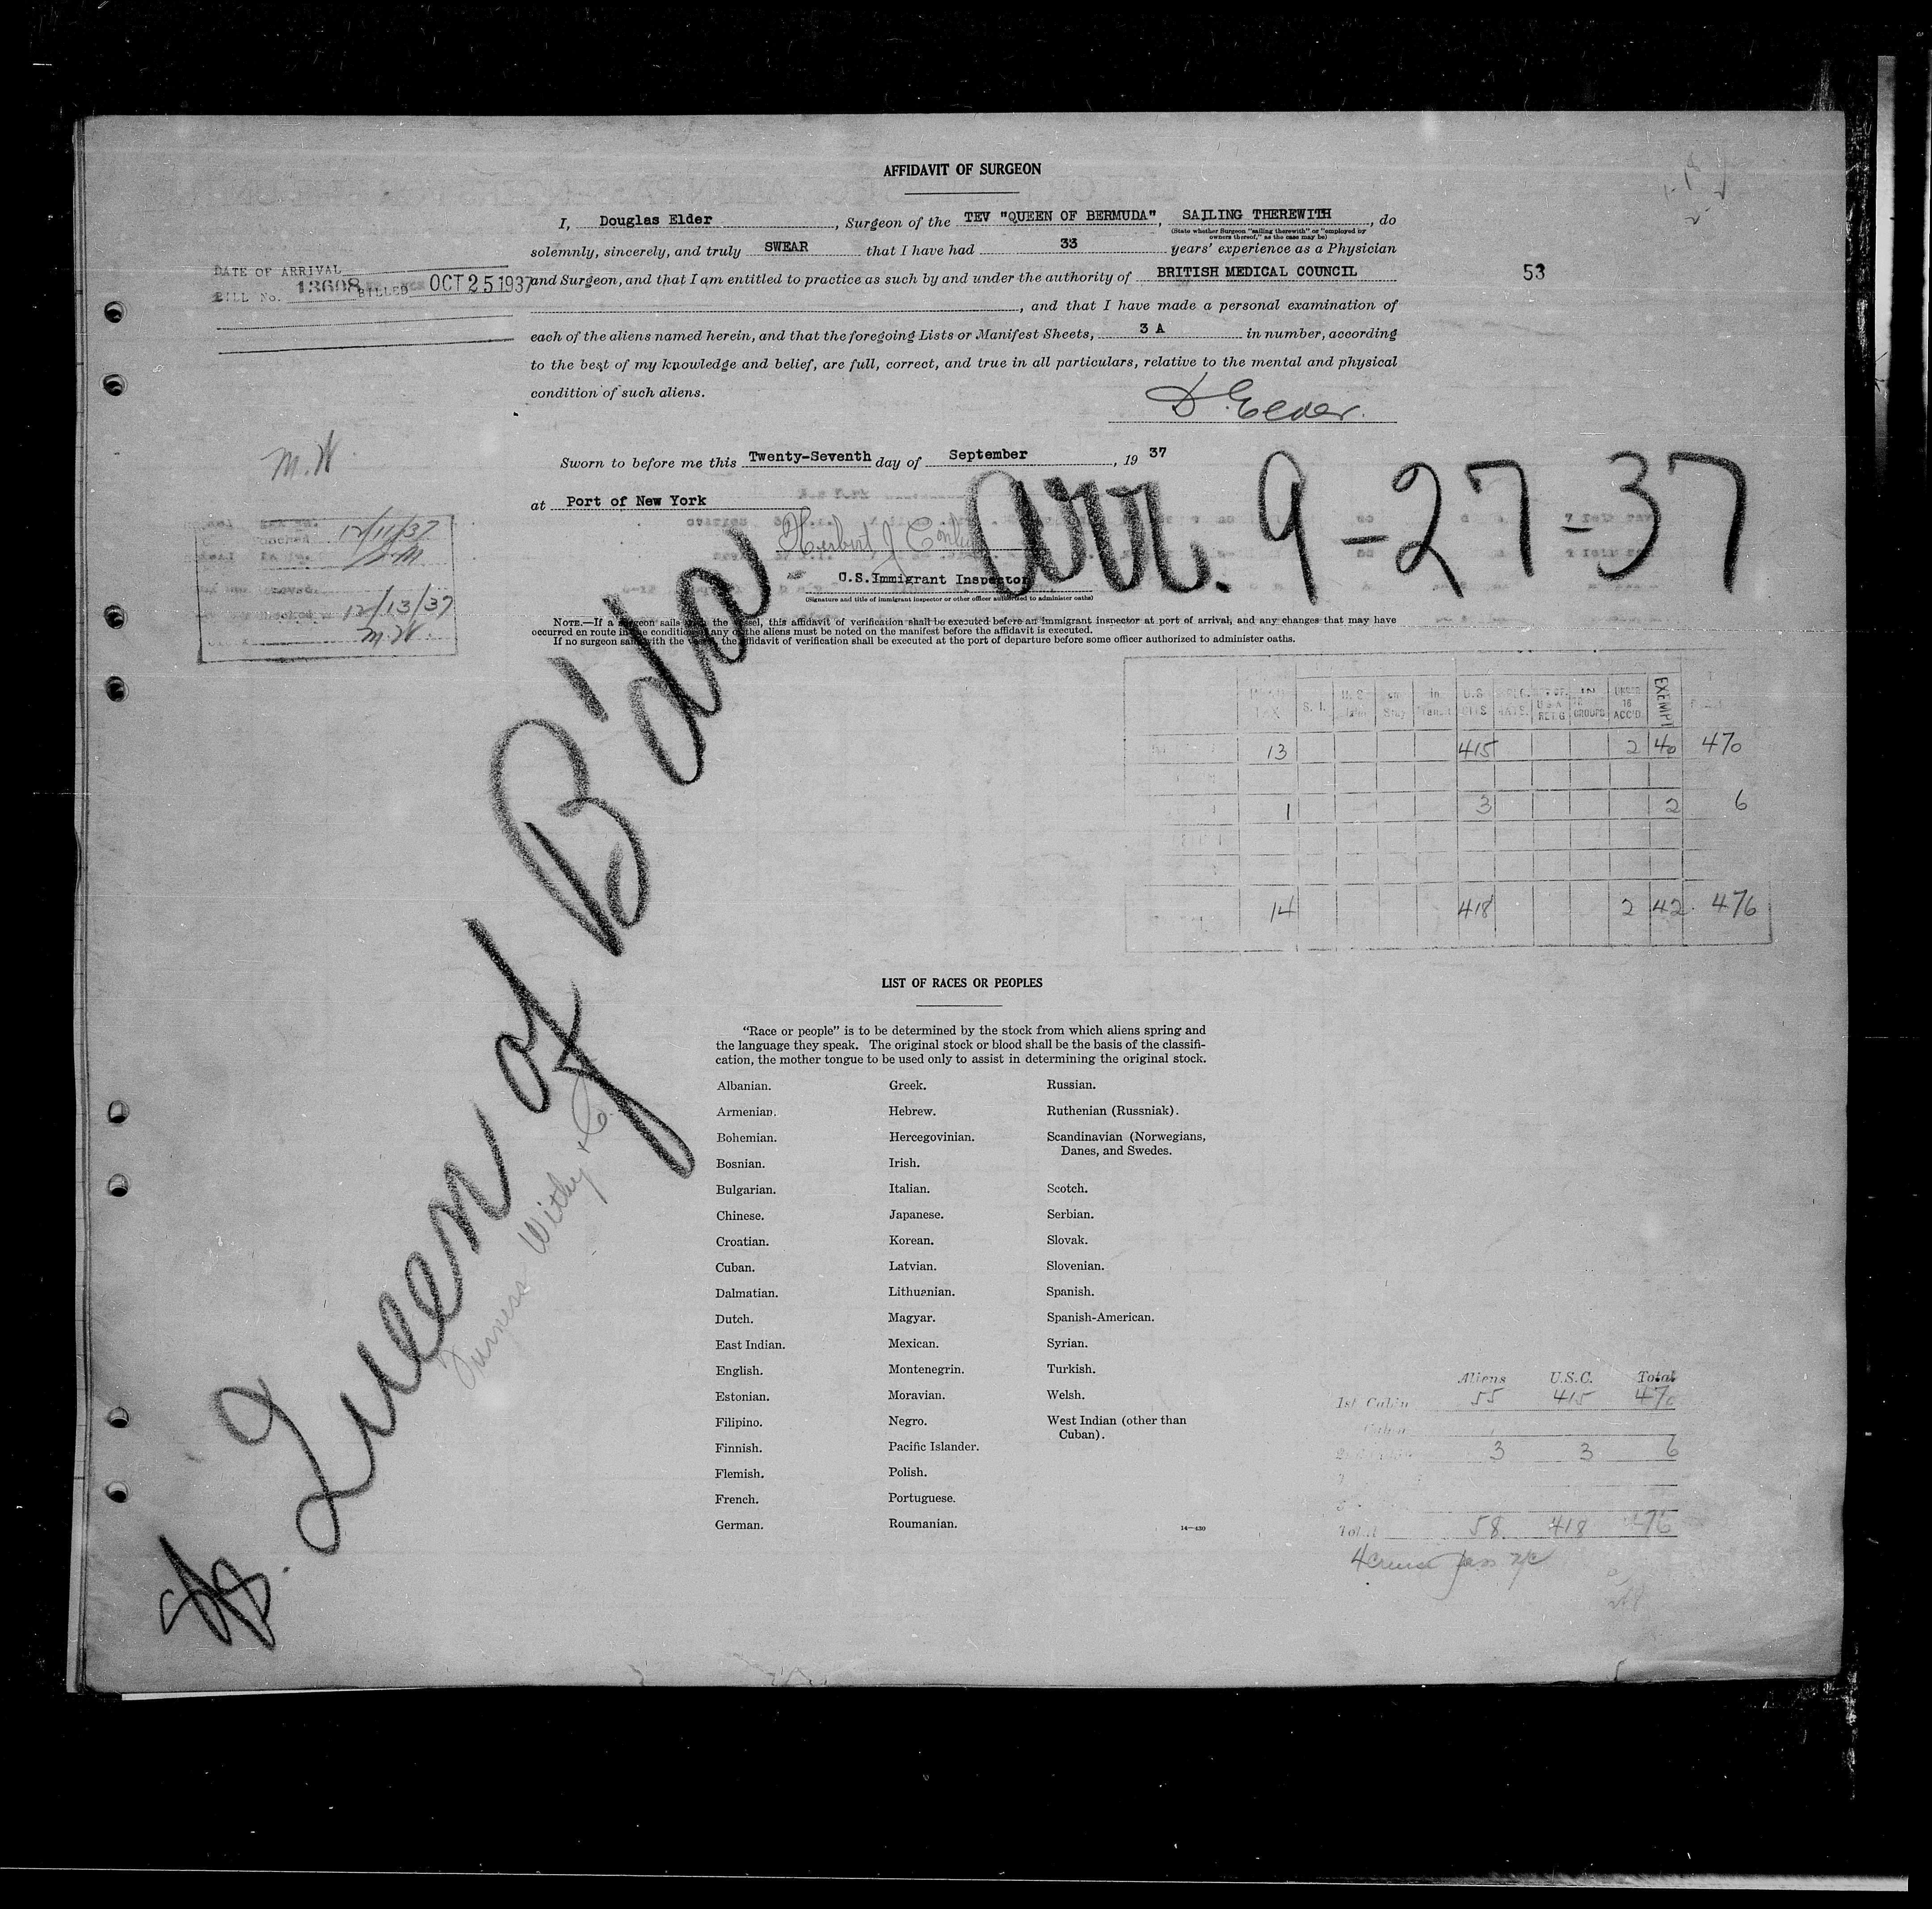 AFFIDAVIT OF SURGEON
I, Douglas Elder, Surgeon of the TEV "QUEEN OF BERMUDA", SAILING THEREWITH, do
(State whether Surgeon "sailing therewith" or "employed by
owners thereof," as the case may be)
solemnly, sincerely, and truly SWEAR that I have had 33 years' experience as a Physician
and Surgeon, and that I am entitled to practice as such by and under the authority of BRITISH MEDICAL COUNCIL
, and that I have made a personal examination of
each of the aliens named herein, and that the foregoing Lists or Manifest Sheets, 3 A in number, according
to the best of my knowledge and belief, are full, correct, and true in all particulars, relative to the mental and physical
condition of such aliens.
D. Elder.
53
DATE OF ARRIVAL
BILL No. 13608 BILLED OCT 25 1937
M.W.
Sworn to before me this Twenty-Seventh day of September, 19 37
at Port of New York
Arr. 9-27-37
Herbert J
U.S. Immigrant Inspector
(Signature and title of immigrant inspector or other officer authorized to administer oaths)
12/11/37
12/13/37
M.W.
NOTE.—If a surgeon sails with the vessel, this affidavit of verification shall be executed before an immigrant inspector at port of arrival, and any changes that may have
occurred en route in the condition of any of the aliens must be noted on the manifest before the affidavit is executed.
If no surgeon sails with the vessel, the affidavit of verification shall be executed at the port of departure before some officer authorized to administer oaths.
S. I. U.S. in Transit U.S. CITS IN GROUPS UNDER 16 ACC'D EXEMPT
13 415 2 40 470
1 3 2 6
14 418 2 42 476
SS. Queen of B'da
Furness Withy & Co.
LIST OF RACES OR PEOPLES
"Race or people" is to be determined by the stock from which aliens spring and
the language they speak. The original stock or blood shall be the basis of the classifi-
cation, the mother tongue to be used only to assist in determining the original stock.
Albanian.
Armenian.
Bohemian.
Bosnian.
Bulgarian.
Chinese.
Croatian.
Cuban.
Dalmatian.
Dutch.
East Indian.
English.
Estonian.
Filipino.
Finnish.
Flemish.
French.
German.
Greek.
Hebrew.
Hercegovinian.
Irish.
Italian.
Japanese.
Korean.
Latvian.
Lithuanian.
Magyar.
Mexican.
Montenegrin.
Moravian.
Negro.
Pacific Islander.
Polish.
Portuguese.
Roumanian.
Russian.
Ruthenian (Russniak).
Scandinavian (Norwegians,
Danes, and Swedes.
Scotch.
Serbian.
Slovak.
Slovenian.
Spanish.
Spanish-American.
Syrian.
Turkish.
Welsh.
West Indian (other than
Cuban).
14—430
Aliens U.S.C. Total
1st Cabin 55 415 470
3 3 6
Total 58 418 476
4 cruise pass